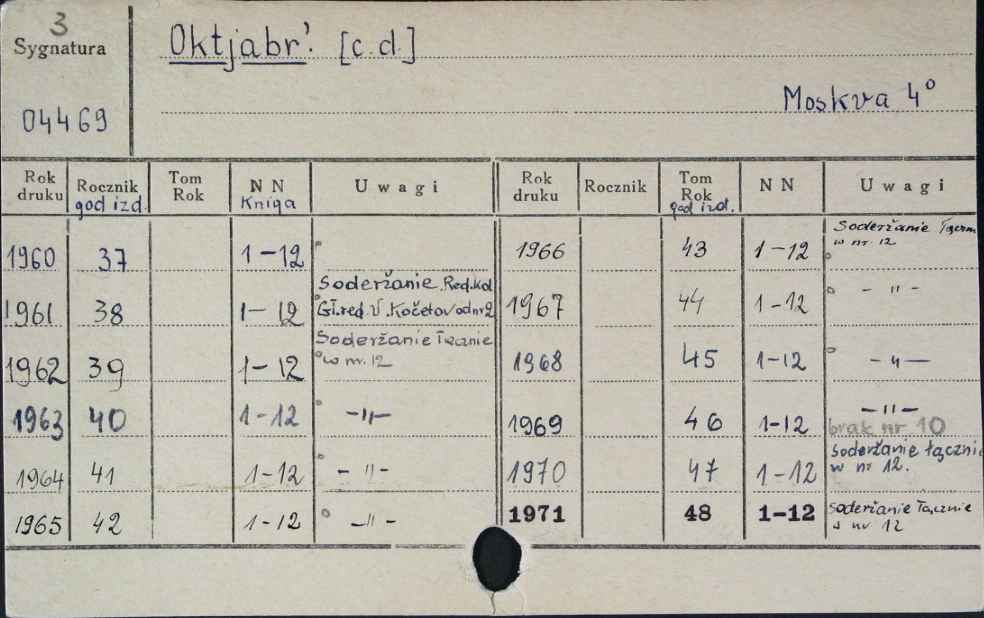 3
Sygnatura
04469
Oktjabr'. [c.d.]
Moskva 4°
Rok druku | Rocznik god izd. | Tom Rok | NN Kniga | Uwagi
1960 37 1-12
1961 38 1-12 Soderžanie. Red.kol. Gł.red. V. Kočetov od nr 2
1962 39 1-12 Soderžanie łącznie w nr. 12
1963 40 1-12 -"-
1964 41 1-12 -"-
1965 42 1-12 -"-
Rok druku | Rocznik | Tom Rok god izd. | NN | Uwagi
1966 43 1-12 Soderžanie łączn w nr 12
1967 44 1-12 -"-
1968 45 1-12 -"-
1969 46 1-12 -"- brak nr 10
1970 47 1-12 Soderžanie łączni w nr 12.
1971 48 1-12 Soderžanie łącznie w nr 12